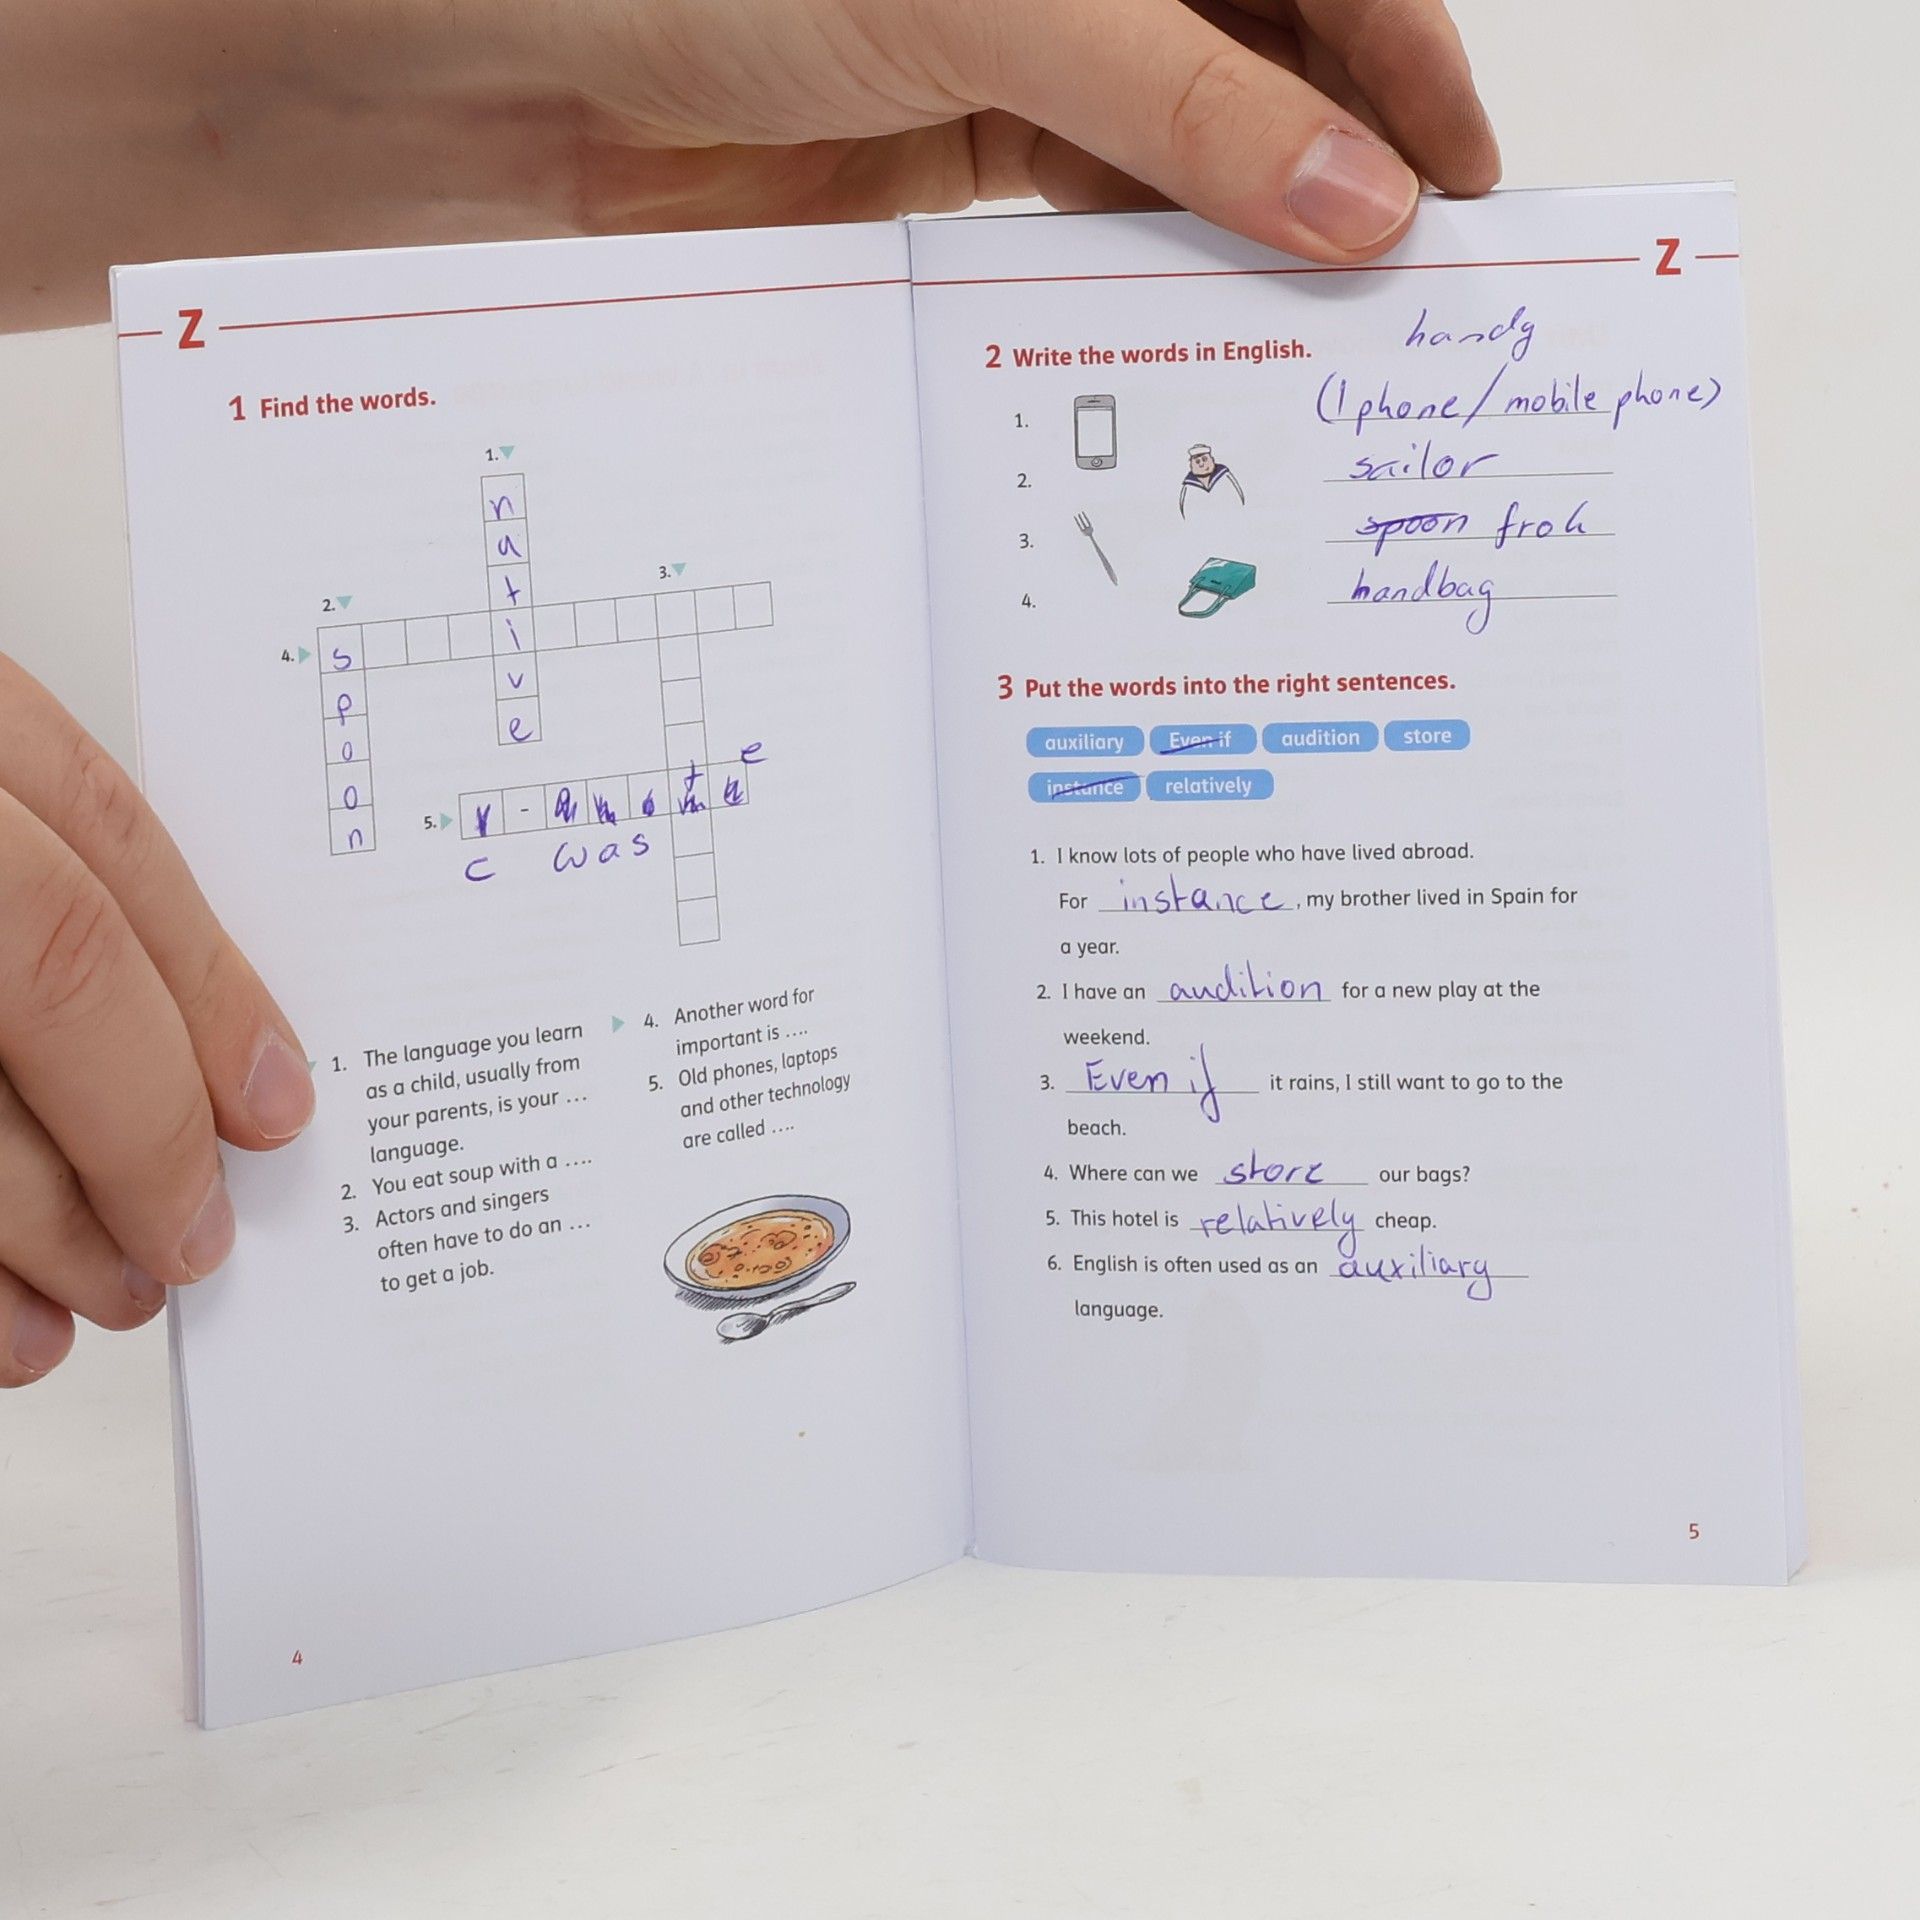 Z
1 Find the words.
1.
n
a
t
i
v
e
2.
3.
4.
s
p
o
o
n
5.
-
t e
c was
1. The language you learn
as a child, usually from
your parents, is your ...
language.
2. You eat soup with a ....
3. Actors and singers
often have to do an ...
to get a job.
4. Another word for
important is ....
5. Old phones, laptops
and other technology
are called ....
4
Z
2 Write the words in English.
handy
1. (I phone/mobile phone)
2. sailor
3. spoon frok
4. handbag
3 Put the words into the right sentences.
auxiliary Even if audition store
instance relatively
1. I know lots of people who have lived abroad.
For instance, my brother lived in Spain for
a year.
2. I have an audition for a new play at the
weekend.
3. Even if it rains, I still want to go to the
beach.
4. Where can we store our bags?
5. This hotel is relatively cheap.
6. English is often used as an auxiliary
language.
5